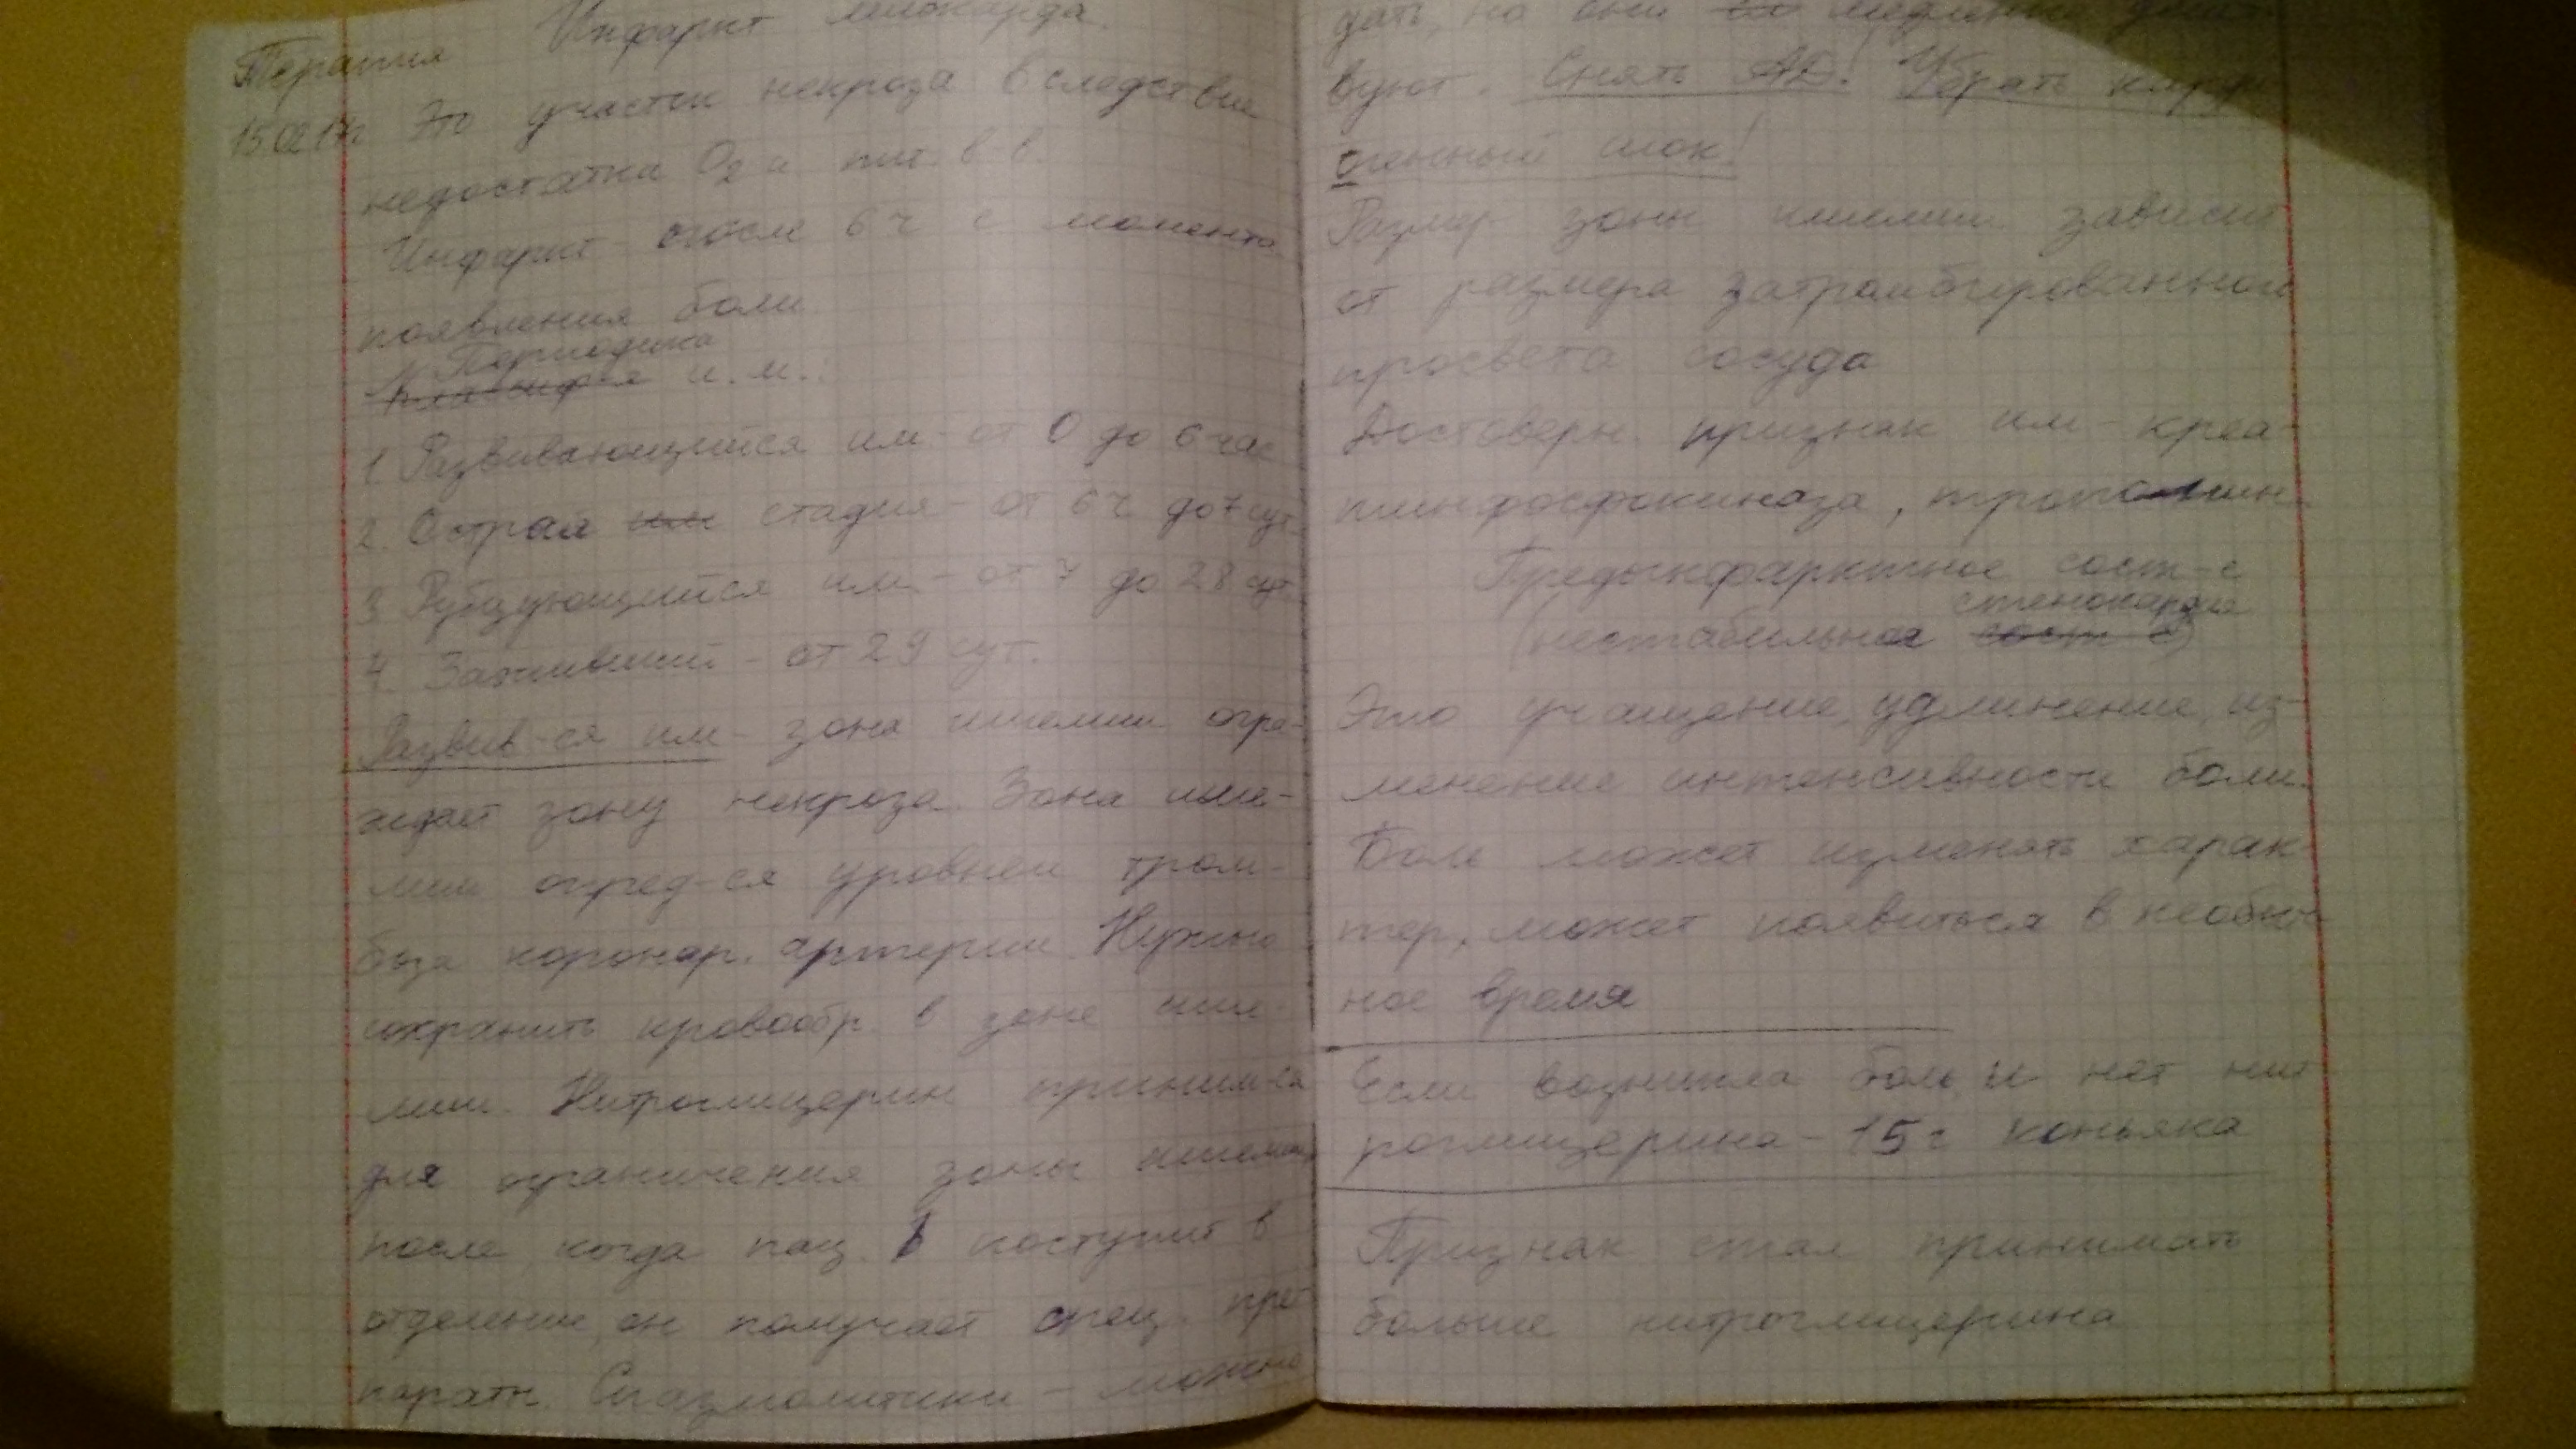 Терапия Инфаркт миокарда.
15.02.17г Это участок некроза вследствие
недостатка O2 и пит. в-в
Инфаркт - после 6 ч с момента
появления боли.
Периодика
Классиф-я и.м.:
1. Развивающийся им - от 0 до 6 час
2. Острая им стадия - от 6 ч до 7 сут.
3 Рубцующийся им. - от 7 до 28 сут.
4. Заживший - от 29 сут.
Развив-ся им - зона ишемии огра-
ждает зону некроза. Зона ише-
мии опред-ся уровнем тром-
боза коронар. артерии. Нужно
сохранить кровообр. в зоне ише-
мии. Нитроглицерин приним-ся
для ограничения зоны ишемии,
после, когда пац. поступит в
отделение, он получает спец. пре-
параты. Спазмолитики - можно
дать, но они медленно дейст-
вуют. Снять АД! Убрать карди
огенный шок!
Размер зоны ишемии зависит
от размера затромбированного
просвета сосуда
Достоверн. признак им - креа-
тинфосфокиназа, тропонин.
Предынфарктное сост-е
стенокардия
(нестабильная сост-е)
Это учащение, удлинение, из-
менение интенсивности боли.
Боль может изменять харак
тер, может появиться в необыч-
ное время
Если возникла боль и нет нит
роглицерина - 15 г коньяка
Признак стал принимать
больше нитроглицерина